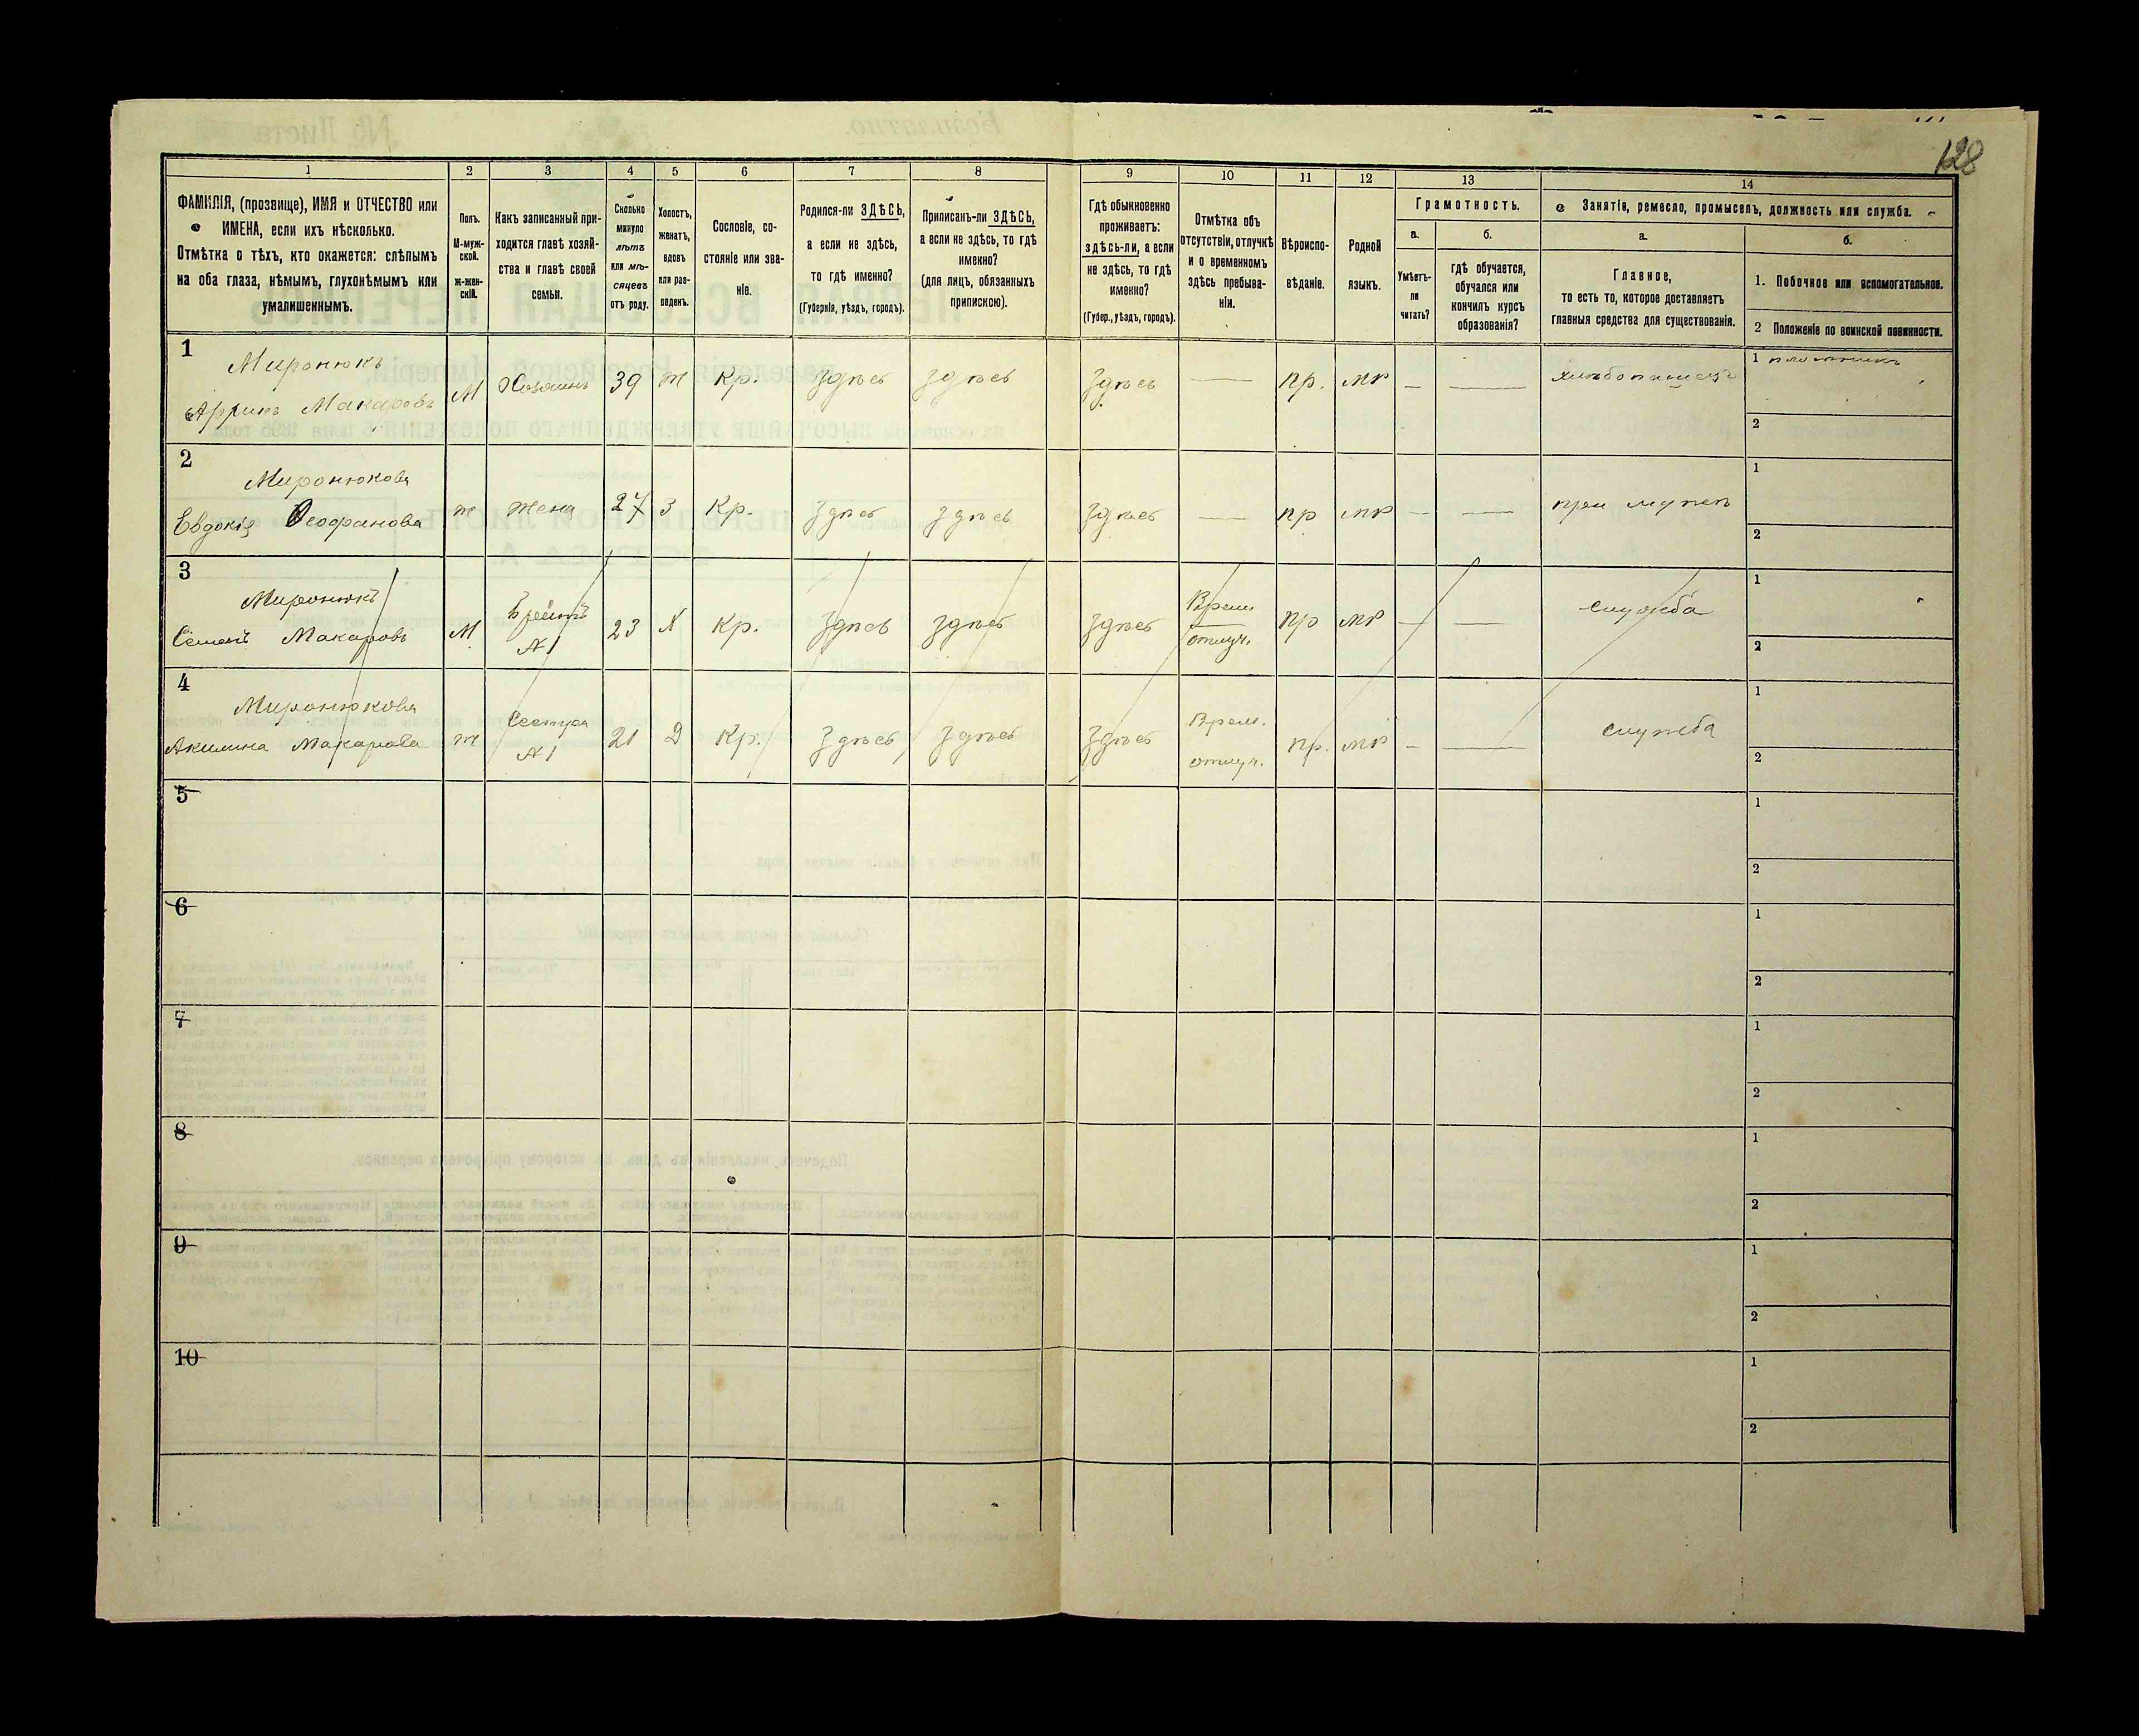 128
1
2
3
4
5
6
7
8
9
10
11
12
13
14
ФАМИЛІЯ, (прозвище), ИМЯ и ОТЧЕСТВО или
ИМЕНА, если ихъ нѣсколько.
Отмѣтка о тѣхъ, кто окажется: слѣпымъ
на оба глаза, нѣмымъ, глухонѣмымъ или
умалишеннымъ.
Полъ.
М-муж-
ской.
ж-жен-
скій.
Какъ записанный при-
ходится главѣ хозяй-
ства и главѣ своей
семьи.
Сколько
минуло
лѣтъ
или мѣ-
сяцевъ
отъ роду.
Холостъ,
женатъ,
вдовъ
или раз-
веденъ.
Сословіе, со-
стояніе или зва-
ніе.
Родился-ли ЗДѢСЬ,
а если не здѣсь,
то гдѣ именно?
(Губернія, уѣздъ, городъ).
Приписанъ-ли ЗДѢСЬ,
а если не здѣсь, то гдѣ
именно?
(для лицъ, обязанныхъ
припискою).
Гдѣ обыкновенно
проживаетъ:
здѣсь-ли, а если
не здѣсь, то гдѣ
именно?
(Губер., уѣздъ, городъ).
Отмѣтка объ
отсутствіи, отлучкѣ
и о временномъ
здѣсь пребыва-
ніи.
Вѣроиспо-
вѣданіе.
Родной
языкъ.
Грамотность.
а.
Умѣетъ-
ли
читать?
б.
гдѣ обучается,
обучался или
кончилъ курсъ
образованія?
Занятіе, ремесло, промыселъ, должность или служба.
а.
Главное,
то есть то, которое доставляетъ
главныя средства для существованія.
б.
1. Побочное или вспомогательное.
2 Положеніе по воинской повинности.
1
Миронюкъ
Макаровъ
М
Хозяинъ
39
ж
Кр.
Здѣсь
Здѣсь
Здѣсь
—
пр.
мр
—
—
хлѣбопашецъ
1 плотникъ
2
2
Миронюкова
Евдокія Ѳеофанова
ж
жена
27
З
Кр.
Здѣсь
Здѣсь
Здѣсь
—
пр
мр
—
—
при мужѣ
1
2
3
Миронюкъ
Семенъ Макаровъ
М
братъ
№1
23
Х
Кр.
Здѣсь
Здѣсь
Здѣсь
Врем.
отлуч.
пр
мр
—
—
служба
1
2
4
Миронюкова
Акилина Макарова
ж
Сестра
№1
21
Д
Кр.
Здѣсь
Здѣсь
Здѣсь
Врем.
отлуч.
пр.
мр
—
—
служба
1
2
5
1
2
6
1
2
7
1
2
8
1
2
9
1
2
10
1
2